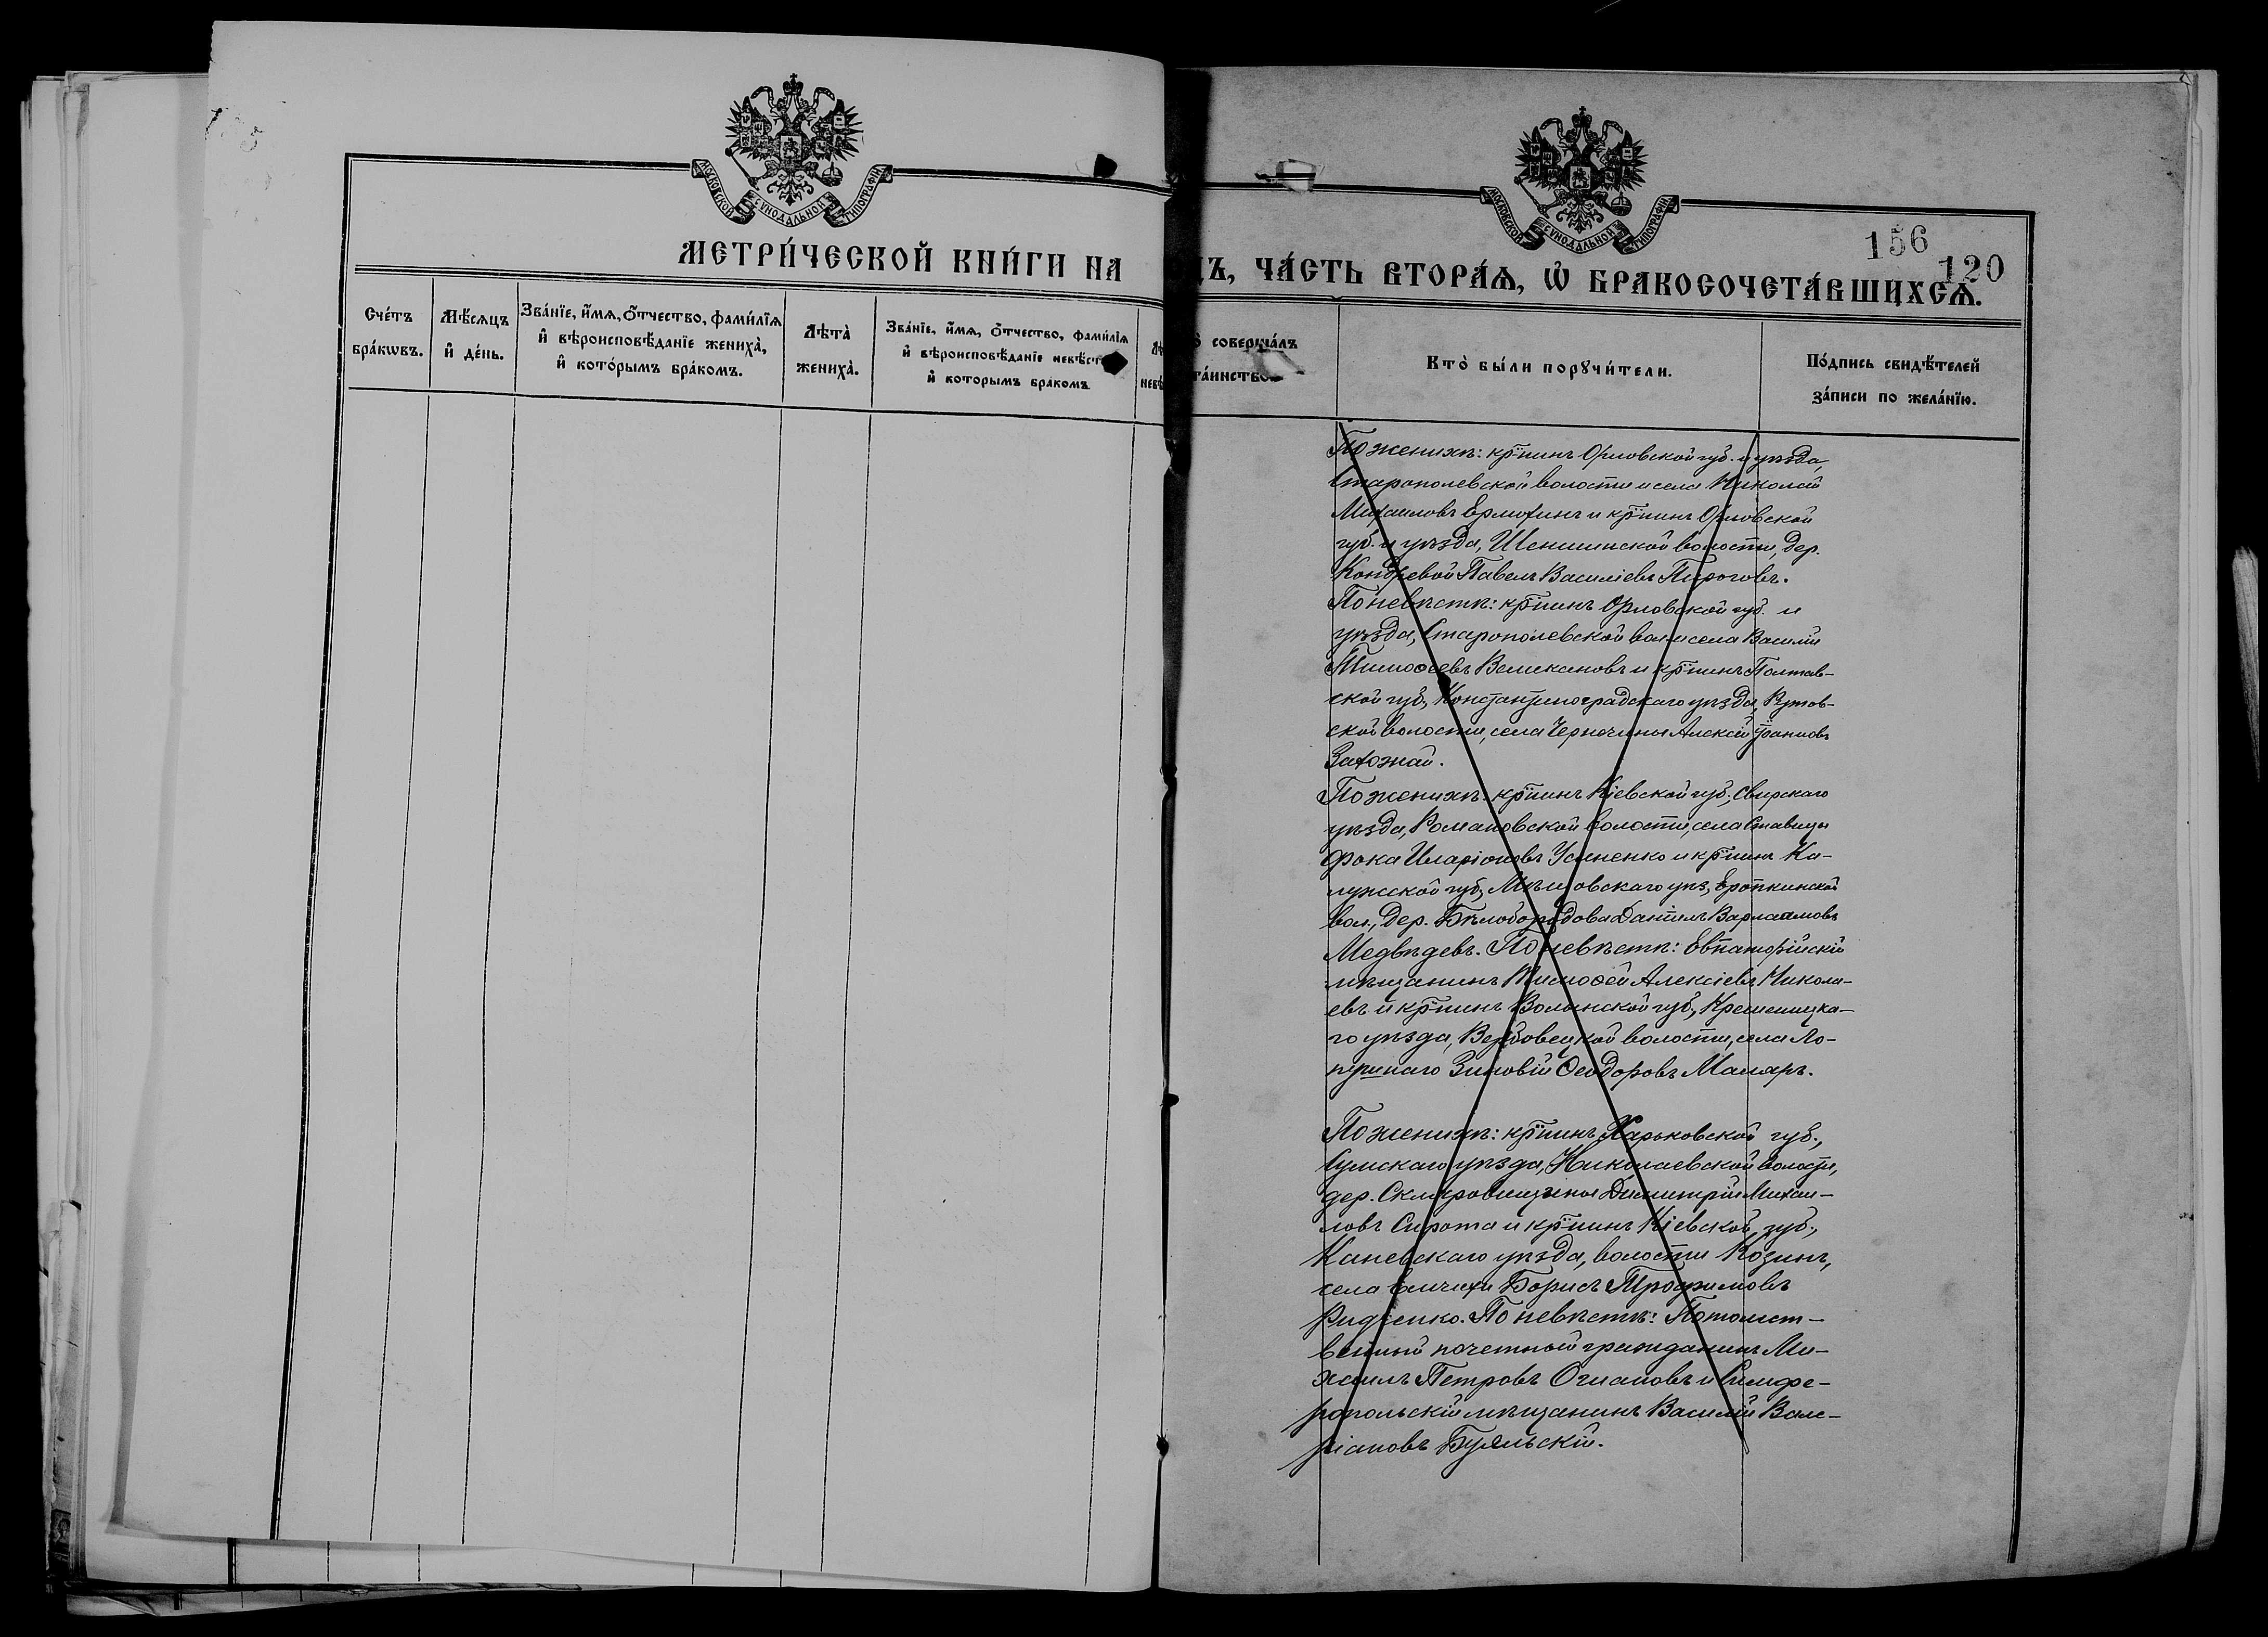 МОСКОВСКОЙ СѴНОДАЛЬНОЙ ТИПОГРАФІИ
МЕТРИ́ЧЕСКОЙ КНИ́ГИ НА
Сче́тъ бра́кѡвъ.
Мѣ́сяцъ и҆ де́нь.
Зва́нїе, и҆́мѧ, ѻ҆́тчество, фами́лїѧ
и҆ вѣроисповѣ́данїе жениха̀,
и҆ кото́рымъ бра́комъ.
Лѣта̀ жениха̀.
Зва́нїе, и҆́мѧ, ѻ҆́тчество, фами́лїѧ
и҆ вѣроисповѣ́данїе невѣ́ст
и҆ которымъ бракомъ
МОСКОВСКОЙ СѴНОДАЛЬНОЙ ТИПОГРАФІИ
156
120
ЦЪ, ЧА́СТЬ ВТОРА́Ѧ, Ѡ҆ БРАКОСОЧЕТА́ВШИХСѦ.
совершáлъ
тáинство
Кто̀ бы́ли порꙋчи́тели.
По́дпись свидѣ́телей
за́писи по жела́нїю.
По женихѣ: кр-нинъ Орловской губ. и уѣзда,
Старополевской волости и села Николай
Михаиловъ Ермохинъ и кр-нинъ Орловской
губ. и уѣзда, Шеншинской волости, дер.
Кондревой Павелъ Василіевъ Пироговъ.
По невѣстѣ: кр-нинъ Орловской губ. и
уѣзда, Старополевской вол. и села Василій
Тимоѳеевъ Великановъ и кр-нинъ Полтав-
ской губ., Константиноградскаго уѣзда,
ской волости, села Чернечины Алексій Іоанновъ
Захожай.
По женихѣ: кр-нинъ Кіевской губ., Свирскаго
уѣзда, Романовской волости, села Ставищи
Фока Иларіоновъ Усиненко и кр-нинъ Ка-
лужской губ., уѣз., Еропкинской
вол., дер. Бѣлобородова Даніилъ Варлаамовъ
Медвѣдевъ. По невѣстѣ: Евпаторійскій
мѣщанинъ Тимоѳей Алексіевъ Никола-
евъ и кр-нинъ Волынской губ., Кременецка-
го уѣзда, Вербовецкой волости, села Ло-
пушнаго Зиновій Ѳеодоровъ Маляръ.
По женихѣ: кр-нинъ Харьковской губ.,
Сумскаго уѣзда, Николаевской волости,
дер. Скляровщины Димитрій Михаи-
ловъ Сирота и кр-нинъ Кіевской губ.,
Каневскаго уѣзда, волости Козинъ,
села Борисъ Трофимовъ
По невѣстѣ: Потомст-
венный почетный гражданинъ Ми-
хаилъ Петровъ Огнановъ и Симфе-
ропольскій мѣщанинъ Василій Вале-
ріановъ Буяльскій.